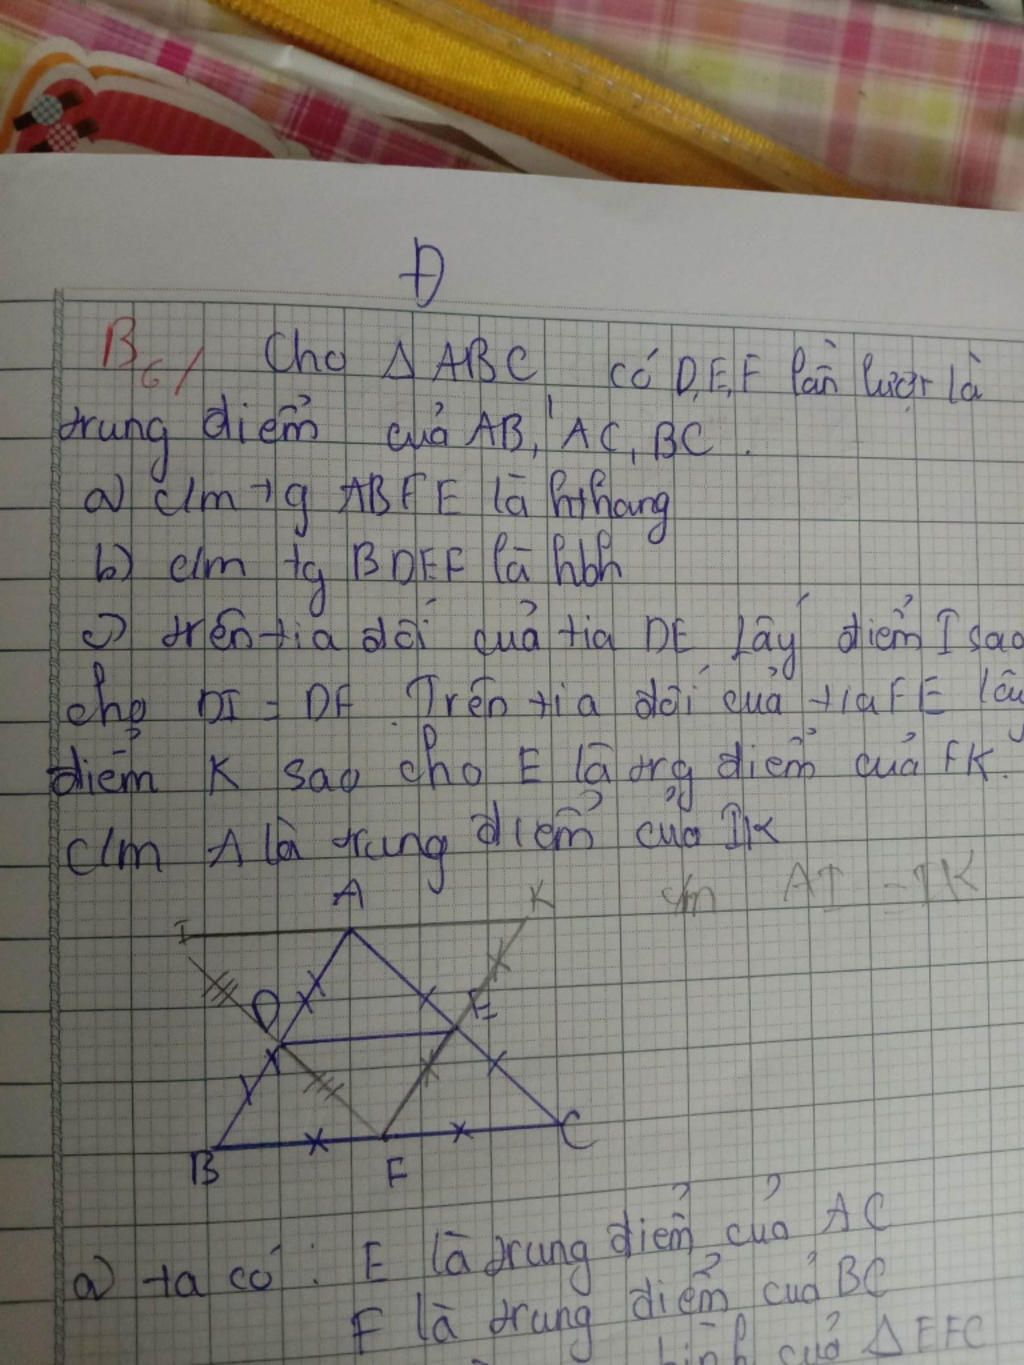 Đ
B6/ Cho Δ ABC có D,E,F lần lượt là
trung điểm của AB, AC, BC.
a) c/m tg ABFE là hthang
b) c/m tg BDEF là hbh
c) trên tia đối của tia DE lấy điểm I sao
cho DI = DF. Trên tia đối của tia FE lấy
điểm K sao cho E là trg điểm của FK.
c/m A là trung điểm của IK
c/m AI = IK
I A K
D E
B F C
a) ta có: E là trung điểm của AC
F là trung điểm của BC
bình của Δ EFC